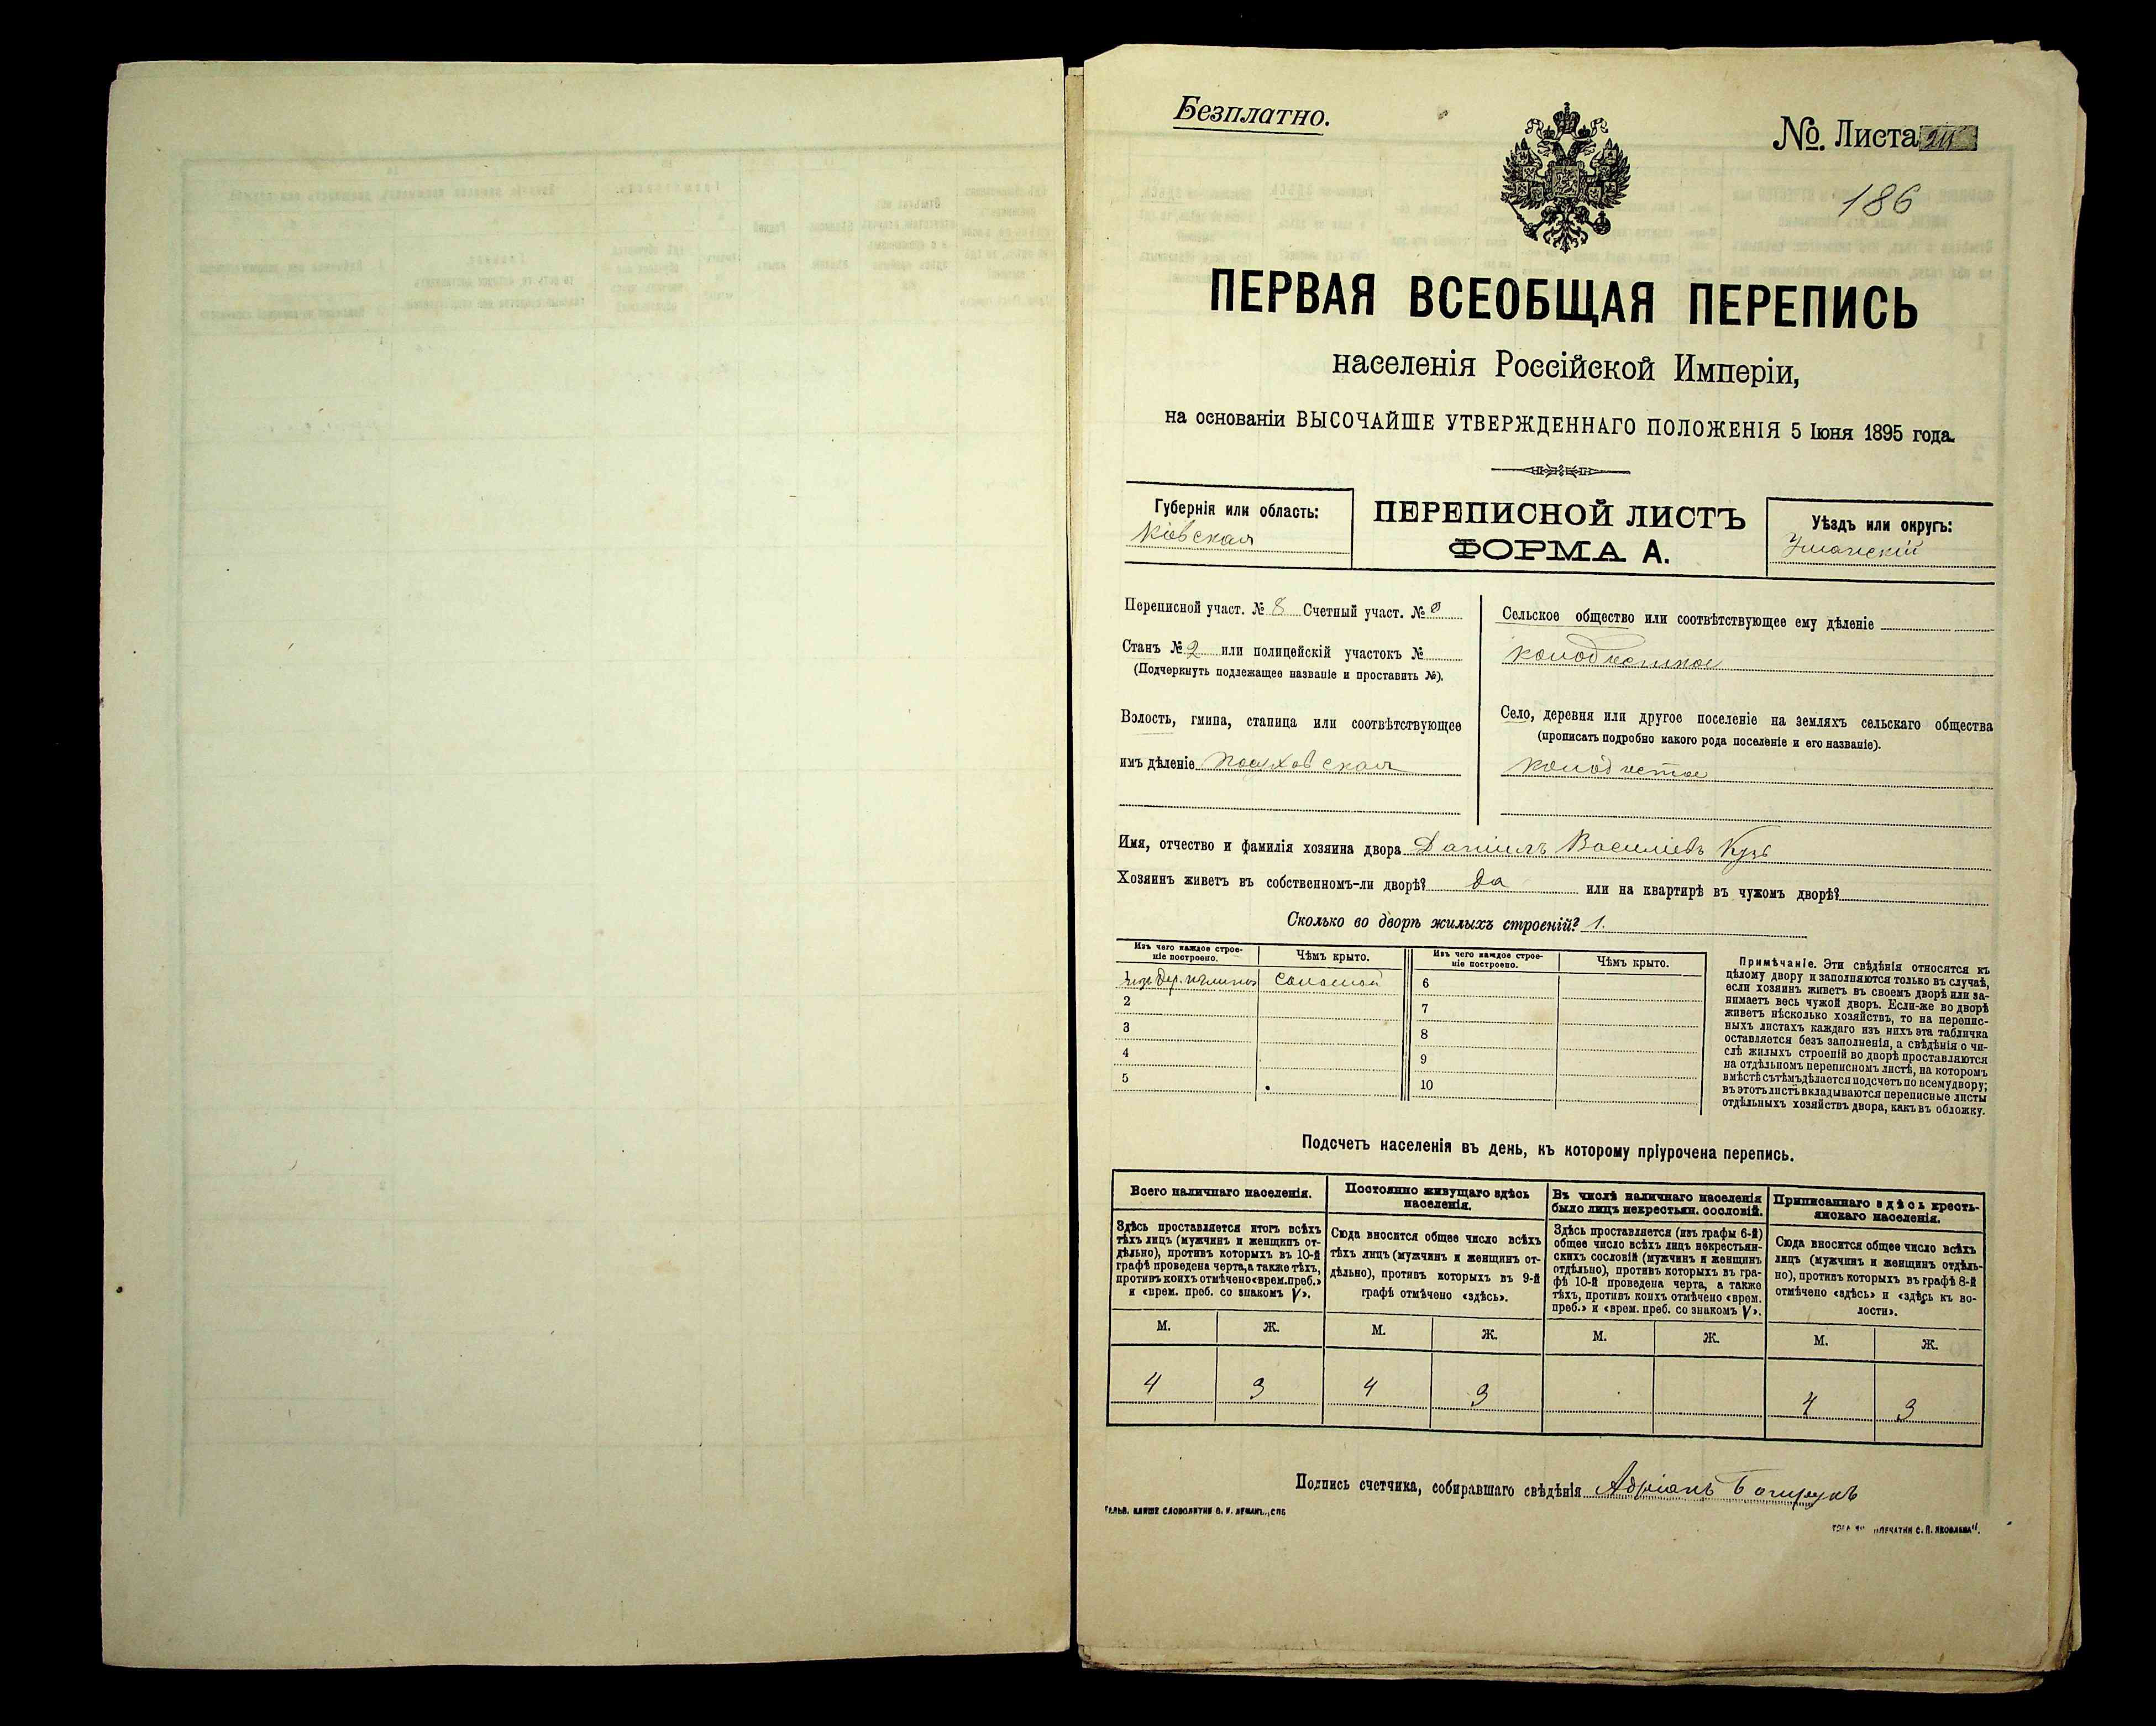 Безплатно.
№. Листа
186
ПЕРВАЯ ВСЕОБЩАЯ ПЕРЕПИСЬ
населенія Россійской Имперіи,
на основаніи ВЫСОЧАЙШЕ УТВЕРЖДЕННАГО ПОЛОЖЕНІЯ 5 Іюня 1895 года.
Губернія или область:
Кіевская
ПЕРЕПИСНОЙ ЛИСТЪ
ФОРМА А.
Уѣздъ или округъ:
Уманскій
Переписной участ. № 8 Счетный участ. №
Станъ № 2 или полицейскій участокъ №
(Подчеркнуть подлежащее названіе и проставить №).
Волость, гмина, станица или соотвѣтствующее
имъ дѣленіе
Сельское общество или соотвѣтствующее ему дѣленіе
Село, деревня или другое поселеніе на земляхъ сельскаго общества
(прописать подробно какого рода поселеніе и его названіе).
колодистое
Имя, отчество и фамилія хозяина двора Даніилъ Василіевъ
Хозяинъ живетъ въ собственномъ-ли дворѣ? да или на квартирѣ въ чужомъ дворѣ?
Сколько во дворѣ жилыхъ строеній? 1.
Изъ чего каждое строе-
ніе построено.
Чѣмъ крыто.
Изъ чего каждое строе-
ніе построено.
Чѣмъ крыто.
соломой
6
2
7
3
8
4
9
5
10
Примѣчаніе. Эти свѣдѣнія относятся къ
цѣлому двору и заполняются только въ случаѣ,
если хозяинъ живетъ въ своемъ дворѣ или за-
нимаетъ весь чужой дворъ. Если-же во дворѣ
живетъ нѣсколько хозяйствъ, то на перепис-
ныхъ листахъ каждаго изъ нихъ эта табличка
оставляется безъ заполненія, а свѣдѣнія о чи-
слѣ жилыхъ строеній во дворѣ проставляются
на отдѣльномъ переписномъ листѣ, на которомъ
вмѣстѣ съ тѣмъ дѣлается подсчетъ по всему двору;
въ этотъ листъ вкладываются переписные листы
отдѣльныхъ хозяйствъ двора, какъ въ обложку.
Подсчетъ населенія въ день, къ которому пріурочена перепись.
Всего наличнаго населенія.
Здѣсь проставляется итогъ всѣхъ
тѣхъ лицъ (мужчинъ и женщинъ от-
дѣльно), противъ которыхъ въ 10-й
графѣ проведена черта, а также тѣхъ,
противъ коихъ отмѣчено «врем. преб.»
и «врем. преб. со знакомъ V».
Постоянно живущаго здѣсь
населенія.
Сюда вносится общее число всѣхъ
тѣхъ лицъ (мужчинъ и женщинъ от-
дѣльно), противъ которыхъ въ 9-й
графѣ отмѣчено «здѣсь».
Въ числѣ наличнаго населенія
было лицъ некрестьян. сословій.
Здѣсь проставляется (изъ графы 6-й)
общее число всѣхъ лицъ некрестьян-
скихъ сословій (мужчинъ и женщинъ
отдѣльно), противъ которыхъ въ гра-
фѣ 10-й проведена черта, а также
тѣхъ, противъ коихъ отмѣчено «врем.
преб.» и «врем. преб. со знакомъ V».
Приписаннаго здѣсь кресть-
янскаго населенія.
Сюда вносится общее число всѣхъ
лицъ (мужчинъ и женщинъ отдѣль-
но), противъ которыхъ въ графѣ 8-й
отмѣчено «здѣсь» и «здѣсь къ во-
лости».
М. Ж. М. Ж. М. Ж. М. Ж.
4 3 4 3 4 3
Подпись счетчика, собиравшаго свѣдѣнія Адріанъ